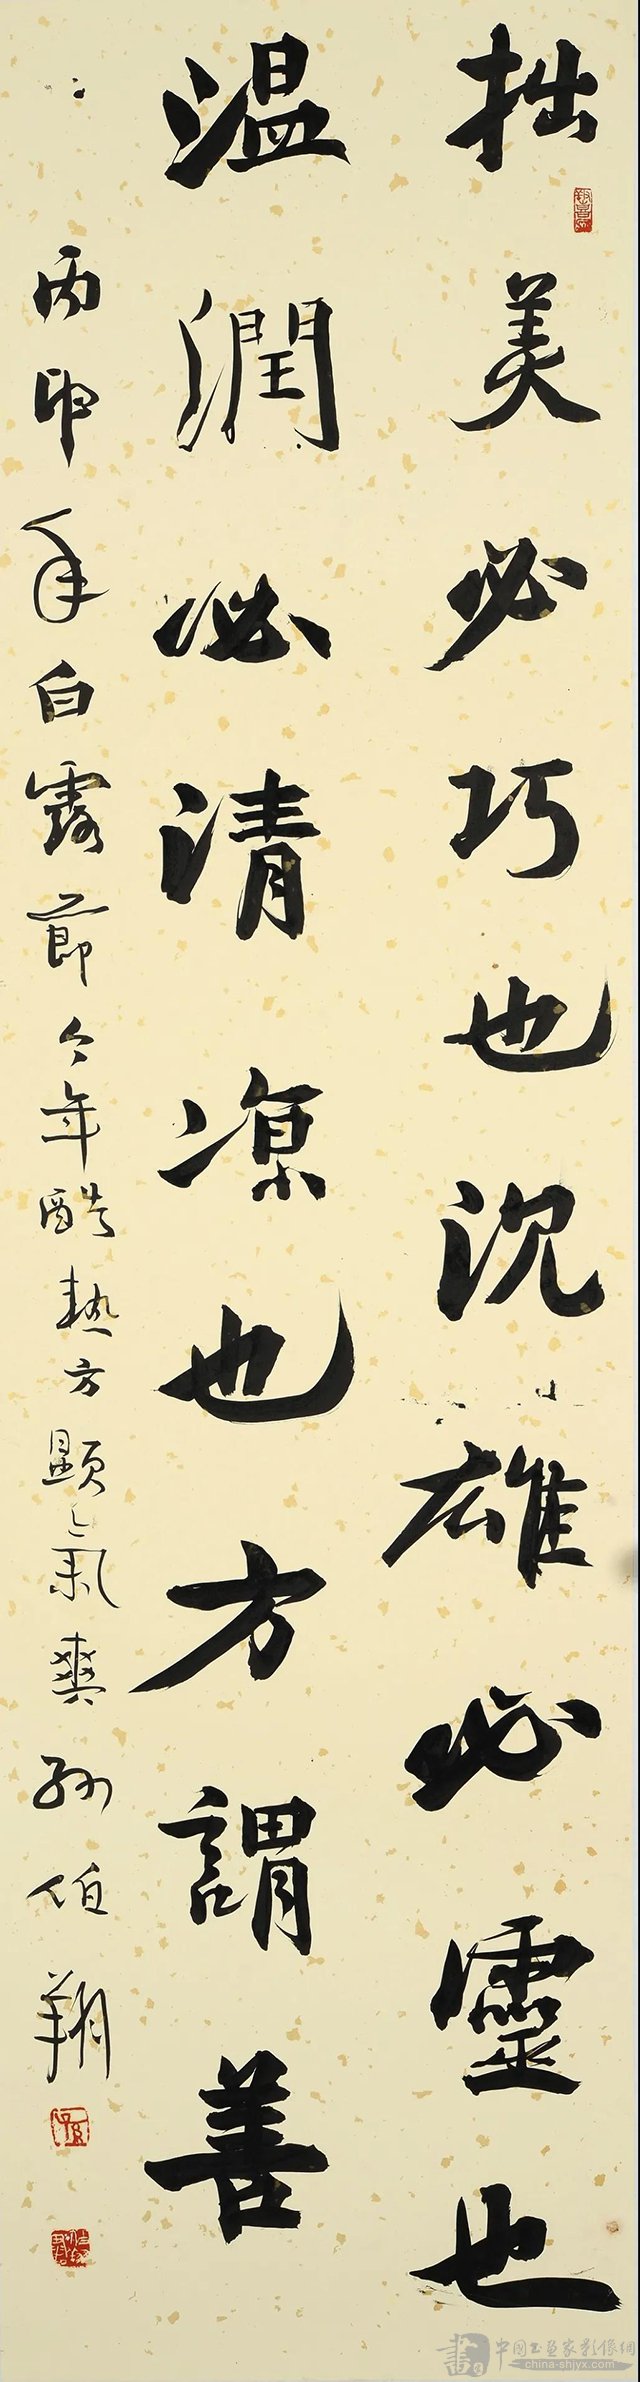 拙美必巧也沉雄必靈也
温潤必清涼也方謂善
丙申年白露節今年酷熱方顯氣爽孫伯翔
中國书画家影像網
china-shjyx.com